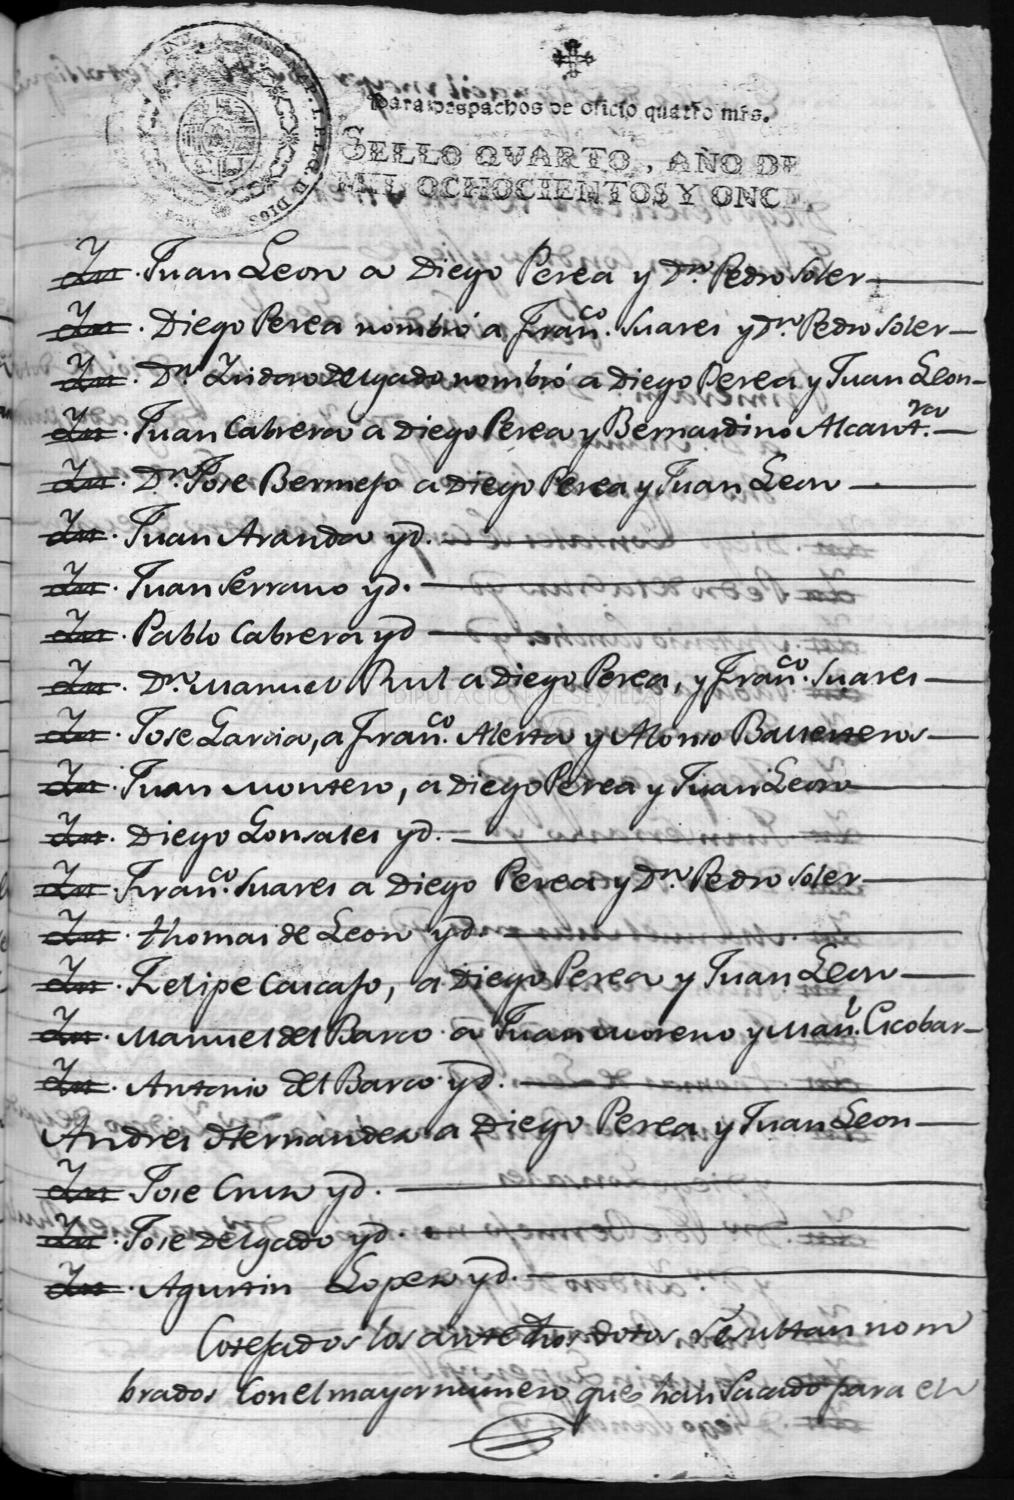 Para despachos de oficio quatro mrs.
SELLO QVARTO, AÑO DE
MIL OCHOCIENTOS Y ONCE.
Juan Leon a Diego Perea y Dn. Pedro Soler
Diego Perea nombró a Franco. Suares y Dn. Pedro Soler
Dn. Ysidoro Delgado nombró a Diego Perea y Juan Leon
Juan Cabrera a Diego Perea y Bernardino Alcantra.
Dn. Jose Bermejo a Diego Perea y Juan Leon
Juan Aranda yd.
Juan Serrano yd.
Pablo Cabrera yd
Dn. Manuel Rul a Diego Perea, y Franco. Suares
Jose Garcia, a Franco. Alerta y Alonso Ballesteros
Juan Montero, a Diego Perea y Juan Leon
Diego Gonsales yd.
Franco. Suares a Diego Perea y Dn. Pedro Soler
thomas de Leon yd.
Felipe Carcaso, a Diego Perea y Juan Leon
Manuel del Barco a Juan Moreno y Manl. Escobar
Antonio del Barco yd.
Andres Hernandez a Diego Perea y Juan Leon
Jose Crus yd.
Jose Delgado yd.
Agustin Lopez yd.
Cotejados los antedhos. votos resultan nom
brados con el mayor numero que han sacado para el
DIPUTACION DE SEVILLA